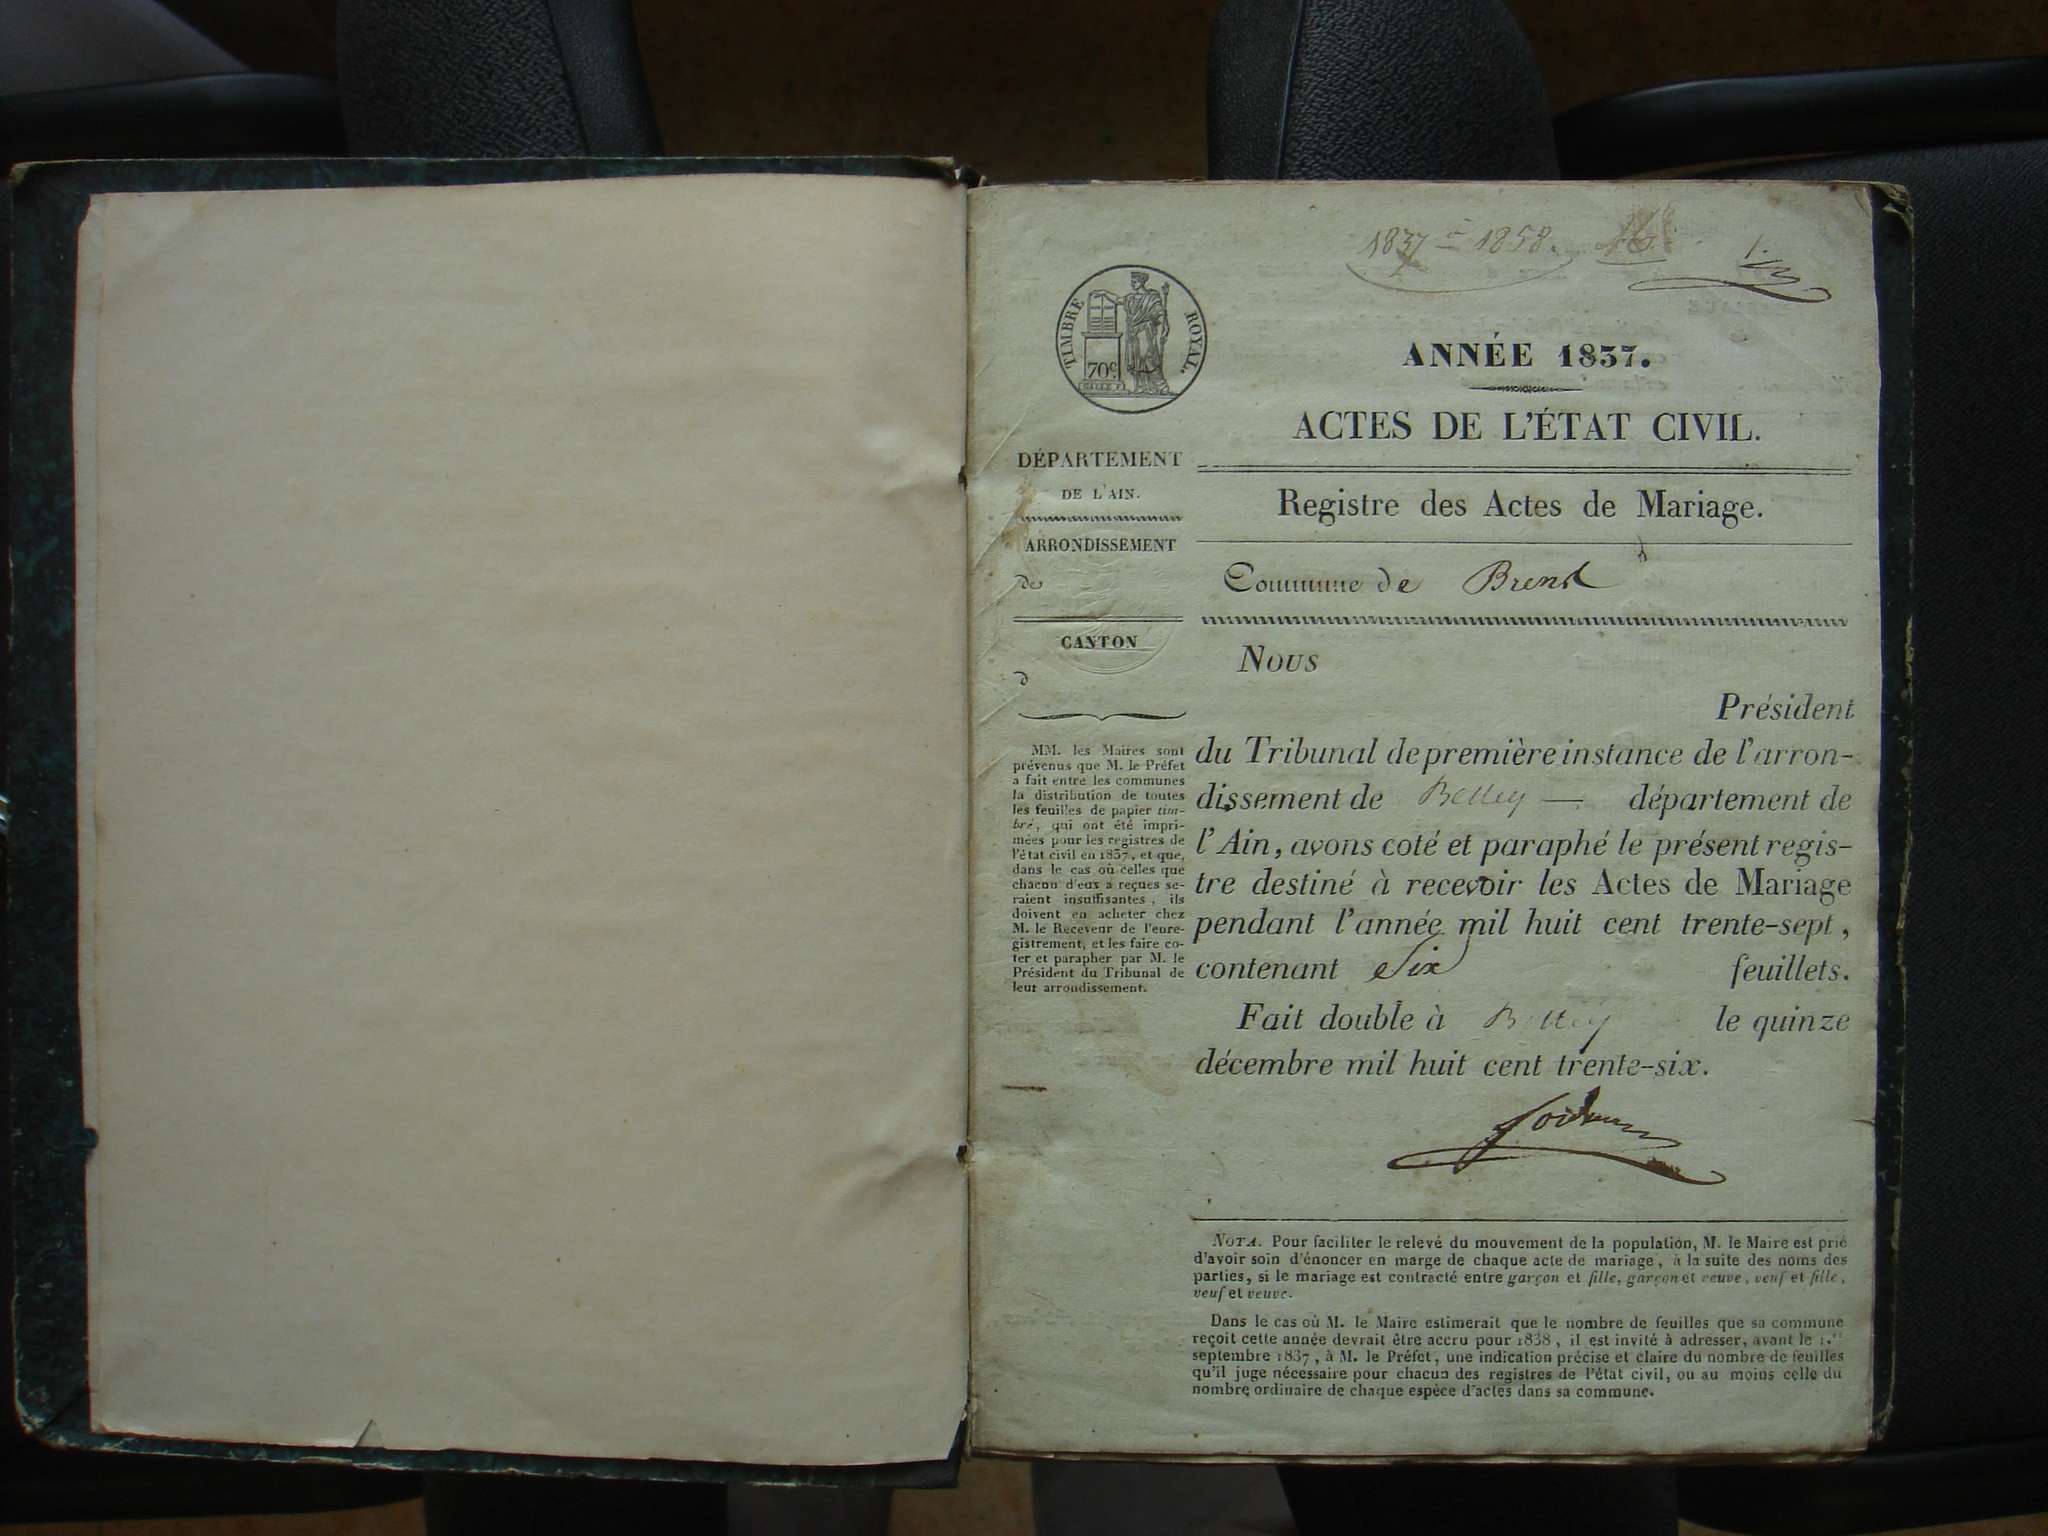 1837 à 1858.
TIMBRE ROYAL.
70c
ANNÉE 1837.
ACTES DE L'ÉTAT CIVIL.
Registre des Actes de Mariage.
Commune de
Nous
Président
du Tribunal de première instance de l'arron-
dissement de Belley — département de
l'Ain, avons coté et paraphé le présent regis-
tre destiné à recevoir les Actes de Mariage
pendant l'année mil huit cent trente-sept,
contenant Six feuillets.
Fait double à Belley le quinze
décembre mil huit cent trente-six.
DÉPARTEMENT
DE L'AIN.
ARRONDISSEMENT
de
CANTON
d
MM. les Maires sont
prévenus que M. le Préfet
a fait entre les communes
la distribution de toutes
les feuilles de papier tim-
bré, qui ont été impri-
mées pour les registres de
l'état civil en 1837, et que,
dans le cas où celles que
chacun d'eux a reçues se-
raient insuffisantes, ils
doivent en acheter chez
M. le Receveur de l'enre-
gistrement, et les faire co-
ter et parapher par M. le
Président du Tribunal de
leur arrondissement.
NOTA. Pour faciliter le relevé du mouvement de la population, M. le Maire est prié
d'avoir soin d'énoncer en marge de chaque acte de mariage, à la suite des noms des
parties, si le mariage est contracté entre garçon et fille, garçon et veuve, veuf et fille,
veuf et veuve.
Dans le cas où M. le Maire estimerait que le nombre de feuilles que sa commune
reçoit cette année devrait être accru pour 1838, il est invité à adresser, avant le 1.er
septembre 1837, à M. le Préfet, une indication précise et claire du nombre de feuilles
qu'il juge nécessaire pour chacun des registres de l'état civil, ou au moins celle du
nombre ordinaire de chaque espèce d'actes dans sa commune.